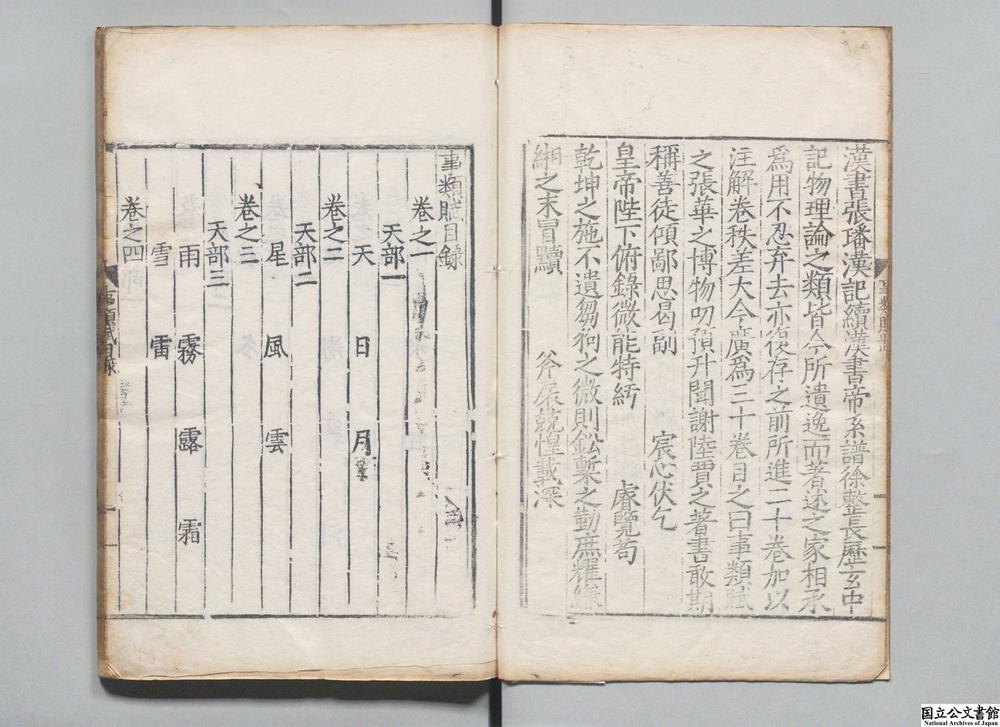 漢書張璠漢記續漢書帝系譜徐整長歷玄中
記物理論之類皆今所遺逸而著述之家相承
為用不忍弃去亦復存之前所進二十卷加以
注解卷秩差大今廣為三十卷目之曰事類賦
之張華之博物叨預升聞謝陸賈之著書敢期
稱善徒傾鄙思曷副 宸心伏乞
皇帝陛下俯錄微能特紆 睿覽苟
乾坤之施不遺芻狗之微則鉛槧之勤庶耀縑
緗之末冒黷 斧扆兢惶載深
事類賦目錄
卷之一
天部一
天 日 月
卷之二
天部二
星 風 雲
卷之三
天部三
雨 霧 露 霜
雪 雷
卷之四
事類賦目錄
国立公文書館
National Archives of Japan